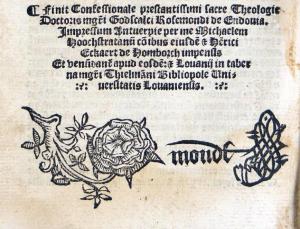 ¶ Finit Confessionale prestantissimi sacre Theologie
Doctoris mgr̄i Godscalci Rosemondi de Endouia.
Impressum Antuerpie per me Michaelem
Hoochstratanū cōibus eiusdē ⁊ Hērici
Eckaert de Homborch impensis
Et venūdant apud eosdē: ⁊ Louanij in taber
na mgr̄i Thielmāni Bibliopole Uni
uersitatis Louaniensis.
monde